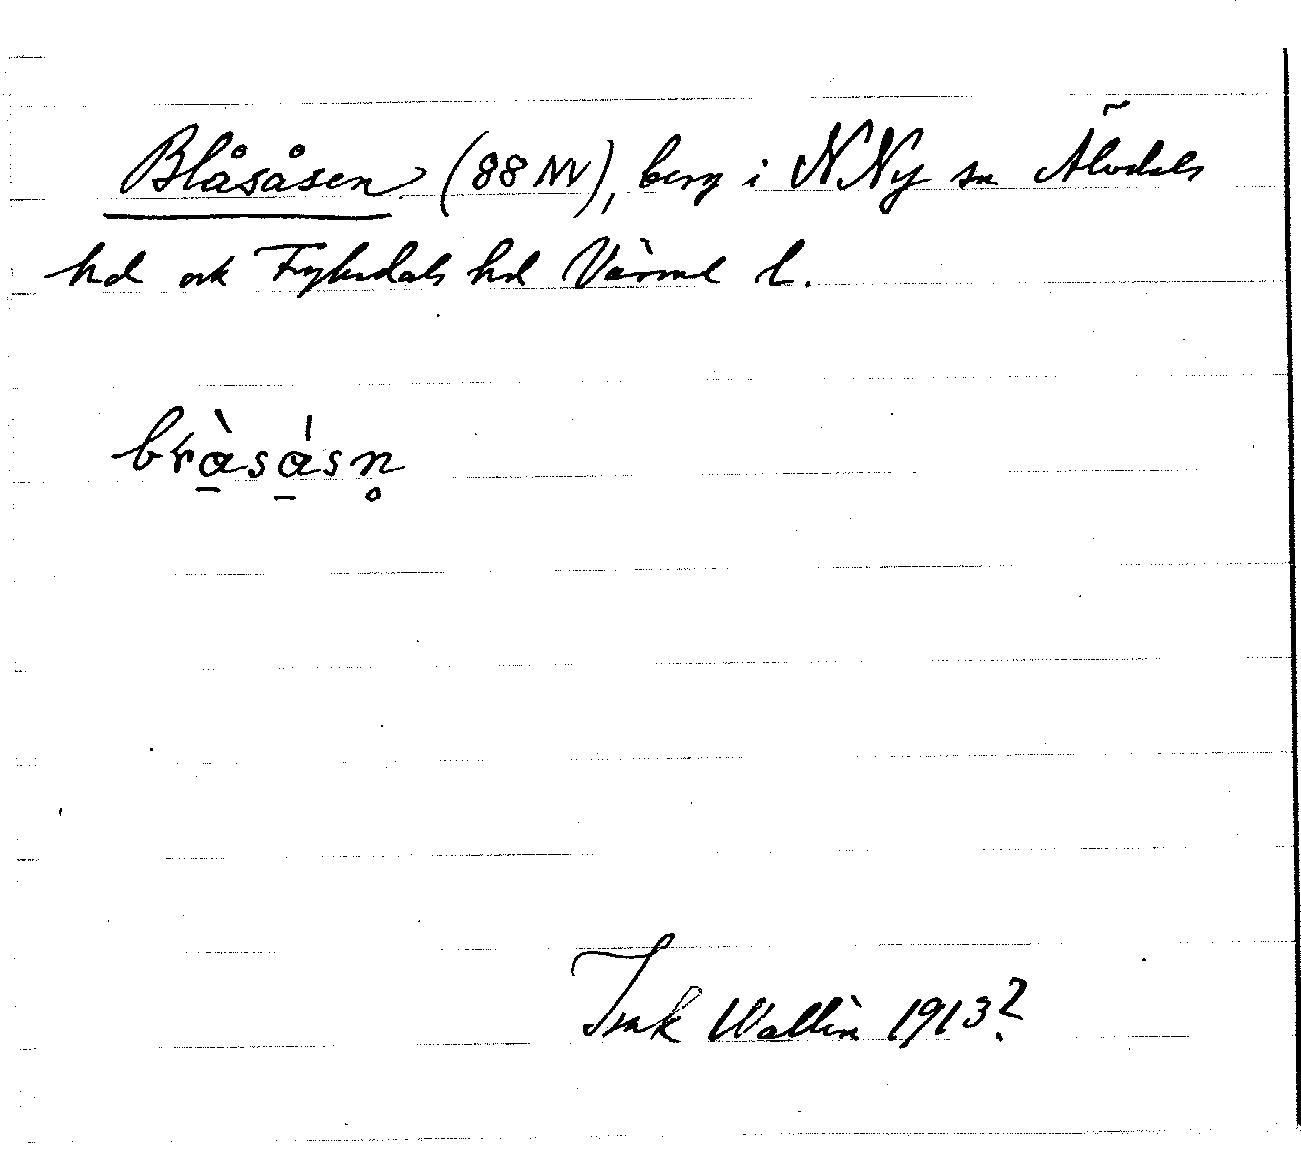 Blåsåsen (88 NV), berg i N Ny sn Älvdals
hd ock Fryksdals hd Värml l.
brὰ̱sά̱sn̥
Isak Wallin 1913?